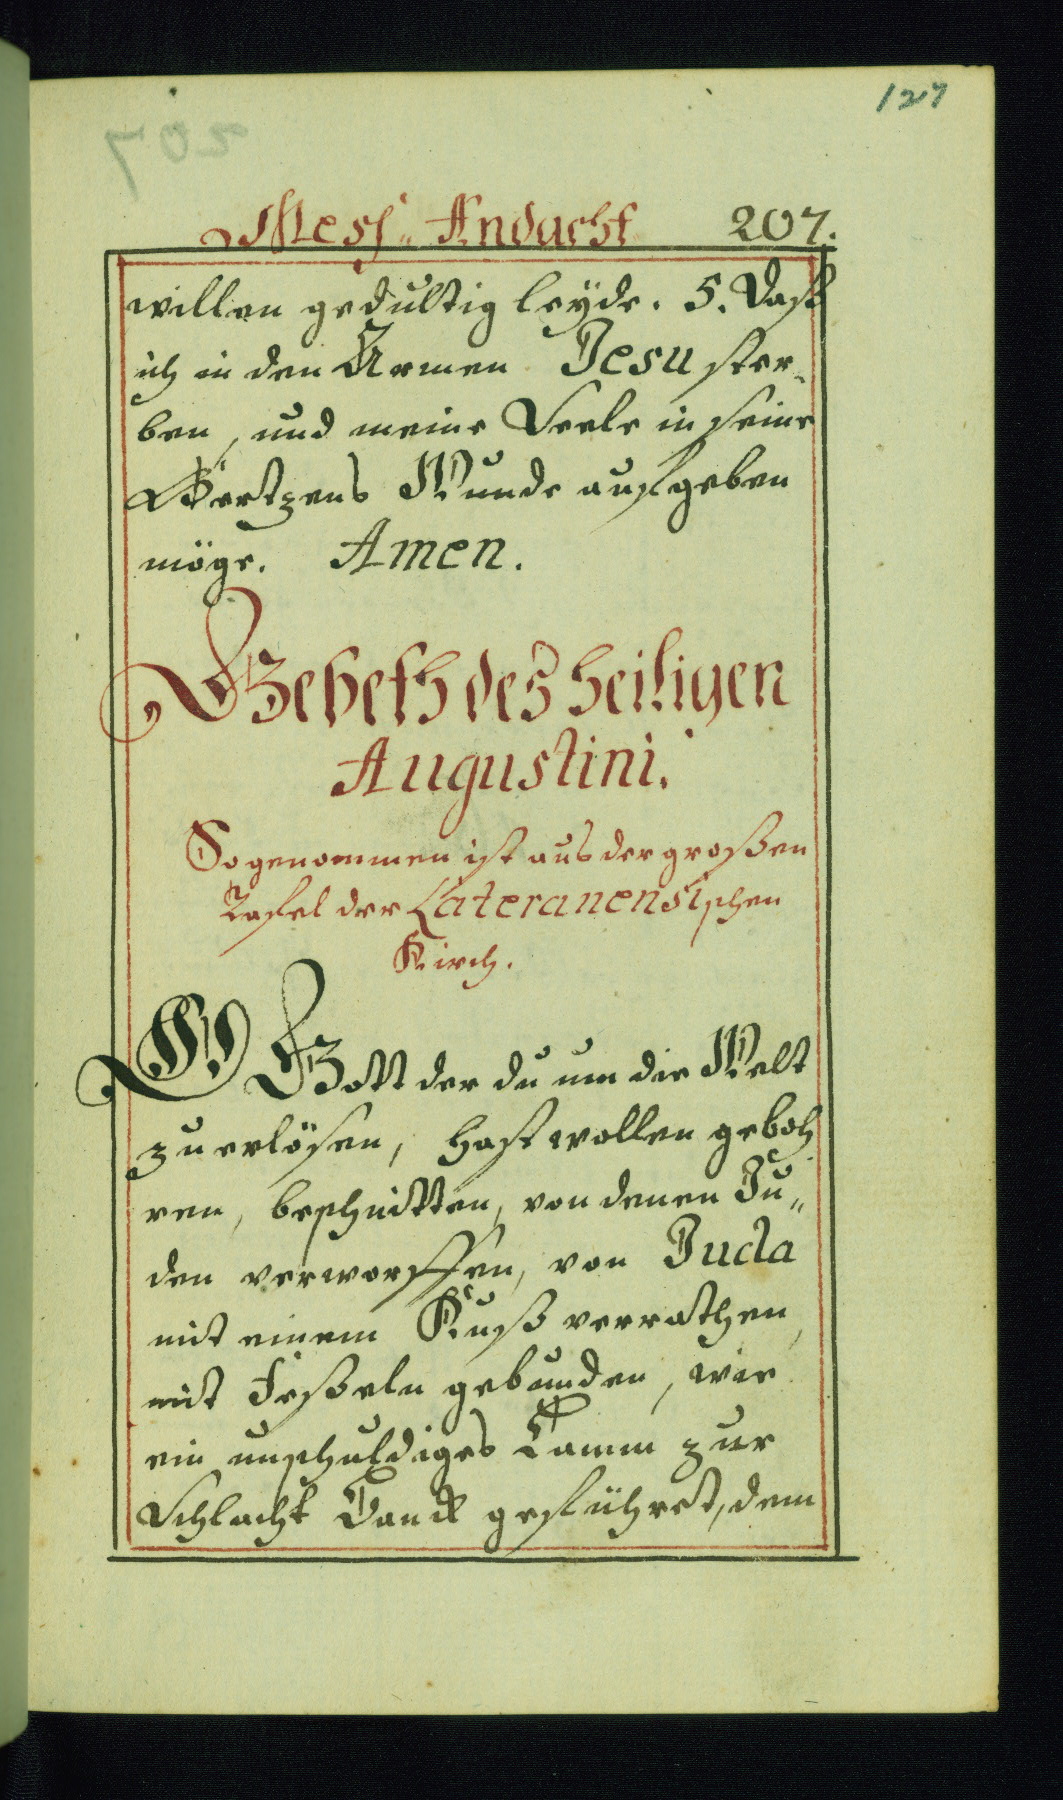 127
Mess-Andacht 207.
willen gedultig leyde. 5. Daß
ich in den Armen Jesu ster-
ben, und meine Seele in seine
Hertzens Wunde aufgeben
möge. Amen.
Gebeth des heiligen
Augustini.
So genommen ist aus der großen
Tafel der Lateranensischen
Kirch.
O Gott der du um die Welt
zu erlösen, hast wollen geboh
ren, beschnitten, von denen Ju„
den verworffen, von Juda
mit einem Kuß verrathen,
mit Feßeln gebunden, wie
ein unschuldiges Lamm zur
Schlacht Banck geführet, dem